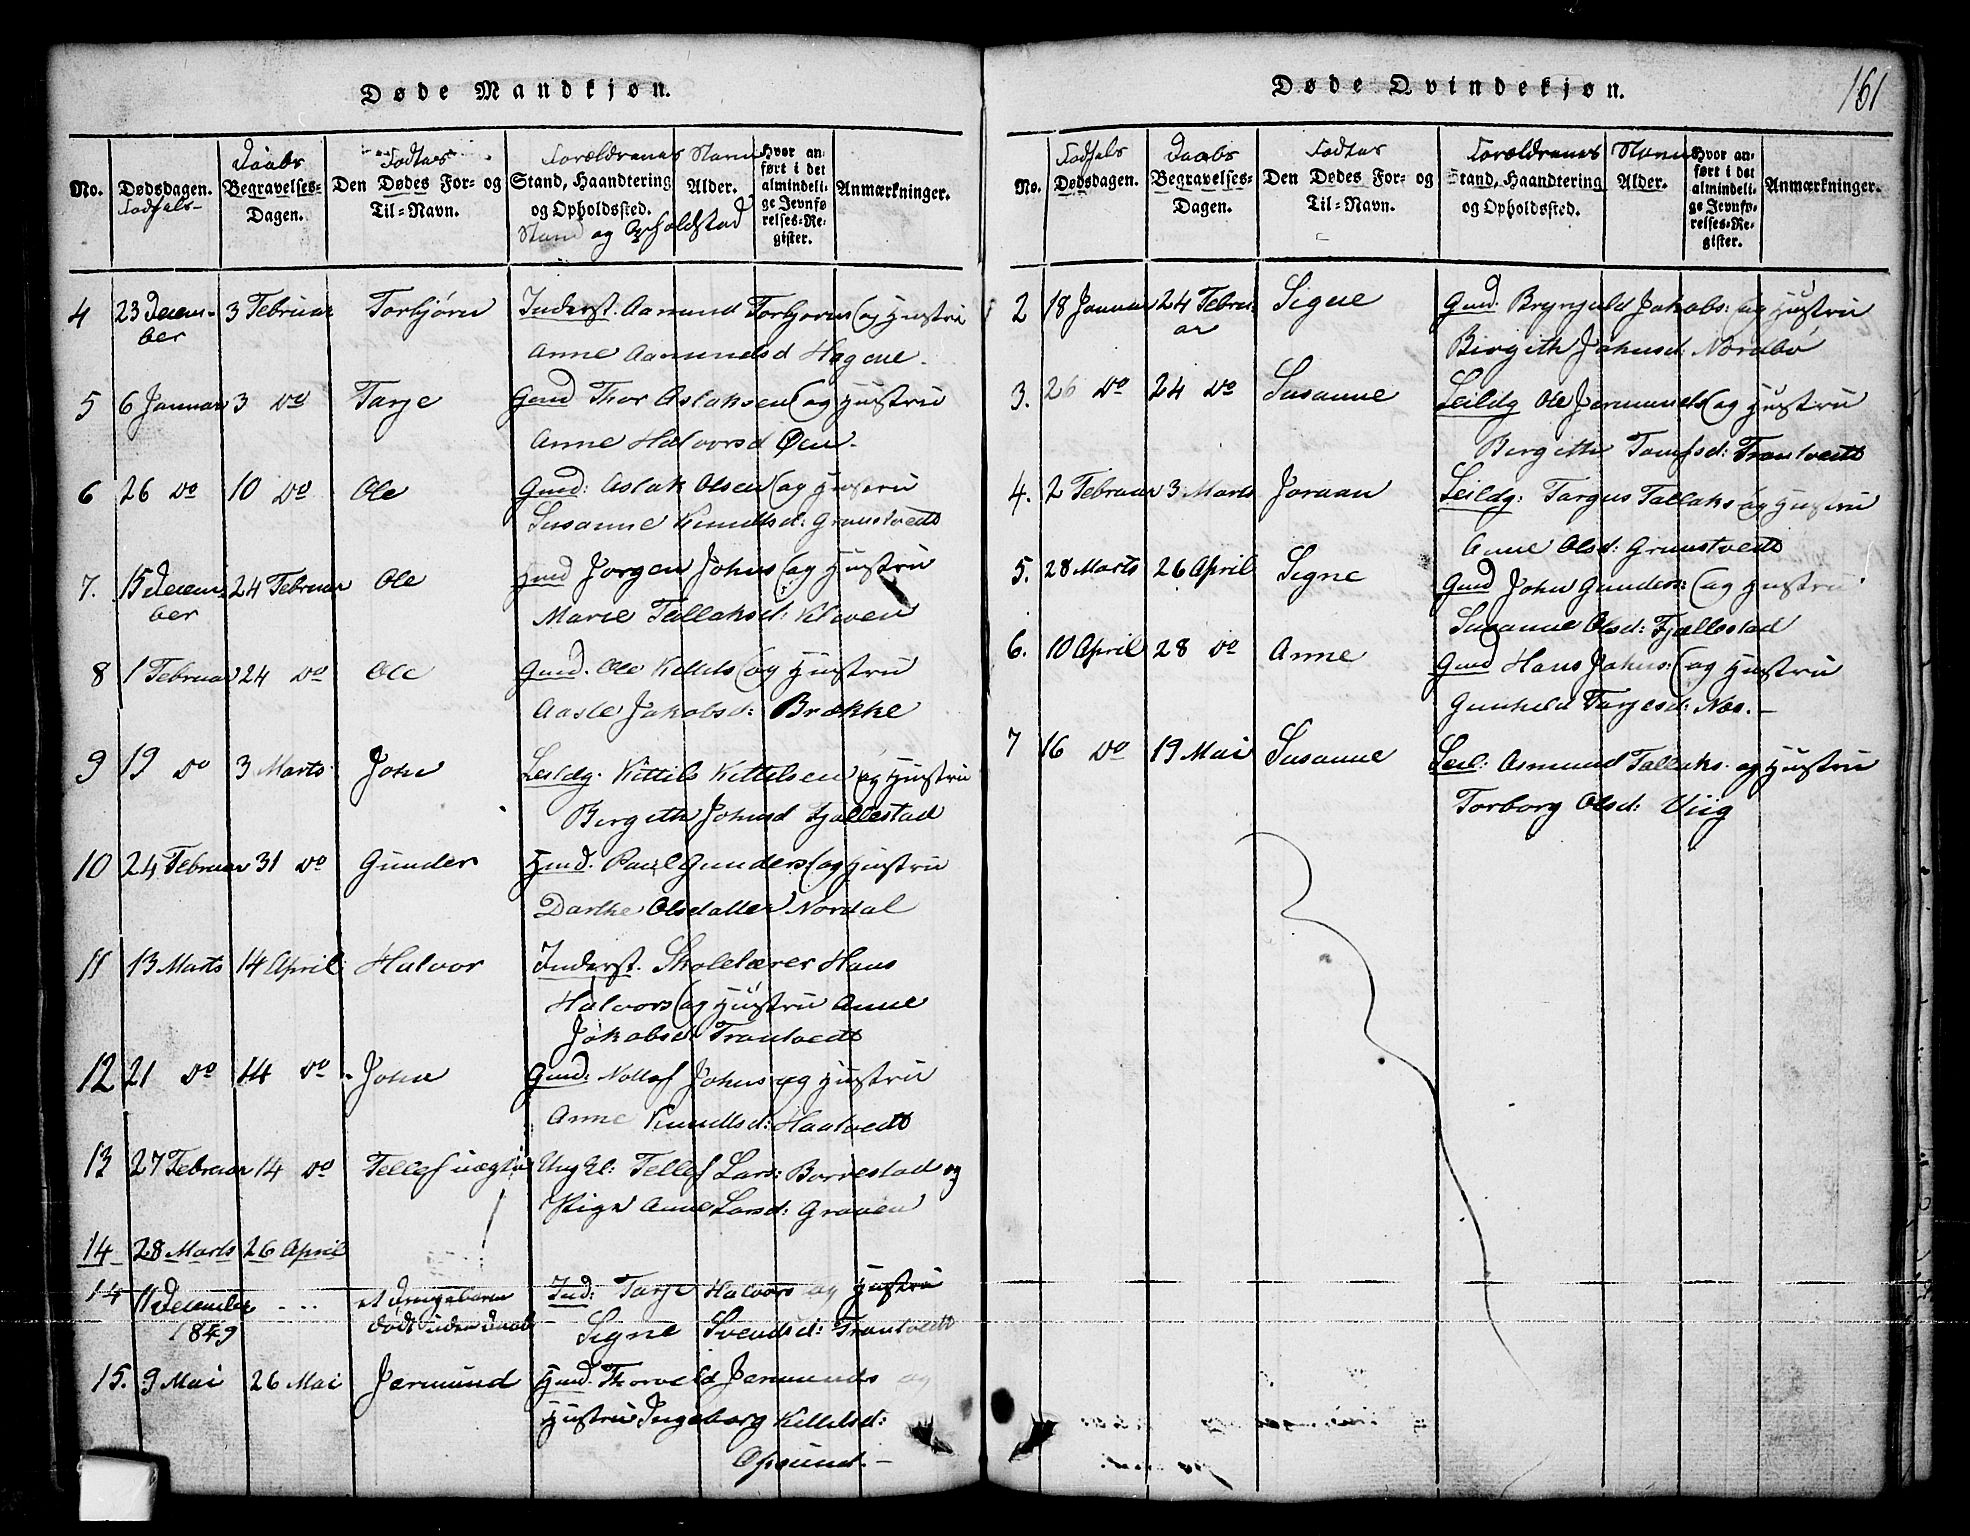 Døde Mandkjøn.
No.
Dødsdagen.
Fødsels-
Daabs
Begravelses-
Dagen.
Fødtes
Den Dødes For- og
Til-Navn.
Forældrenes Navne
Stand, Haandtering
og Opholdssted.
Stand og Opholdstæd
Alder.
Hvor an-
ført i det
almindeli-
ge Jevnfø-
relses-Re-
gister.
Anmærkninger.
4 23 Decem- 3 Februar Torbjörn Inderst. Aamund Torbjorns (og Hustru
ber Anne Aamundsd Hagene.
5 6 Januar 3 do Tarje Gmd Thor Aslaksen (og Hustru
Anne Halvorsd Øen.
6 26 do 10 do Ole Gmd: Aslak Olsen (og Hustru
Susanne Knudsd: Grunstvedt
7. 15 Decem- 24 Februar Ole Hmd Jorgen Johns (og Hustru
ber Marie Tallaksd: Kliven
8 1 Februar 24 do Ole Gmd. Ole Kittils (og Hustru
Aasle Jakobsd: Brække
9 19 do 3 Marts John Leildg. Kittils Kittelsen (og Hustru
Birgith Johnsd Fjallestad
10 24 Februar 31 do Gunder Hmd. Paul Gunders (og Hustru
Dorthe Olsdatter Nordal
11 13 Marts 14 April Halvor Inderst. Skolelærer Hans
Halvors (og Hustru Anne
Jakobsd: Trantvedt
12 21 do 14 do John Gmd: Nollof Johns og Hustru
Anne Knudsd: Haatvedt
13 27 Februar 14 do Tellef uægte Ung Kl: Tellef Lars: Borrestad og
Pige Anne Larsd: Graven
14 28 Marts 26 April
14 11 December - ... et Drengebarn Ind: Tarje Halvors og Hustru
1849 dødt uden Daab Signe Svendsd: Trantvedt
15. 9 Mai 26 Mai Jermund Hmd. Thorvald Jermunds og
Hustru Ingeborg Kittilsd:
Opsund.
Døde Qvindekjøn.
161
No.
Fødsels
Dødsdagen.
Daabs
Begravelses-
Dagen.
Fødtes
Den Dødes For- og
Til-Navn.
Forældrenes Navne
Stand, Haandtering
og Opholdssted.
Alder.
Hvor an-
ført i det
almindeli-
ge Jevnfø-
relses-Re-
gister.
Anmærkninger.
2 18 Januar 24 Febru- Signe Gmd. Brynjuld Jakobs: (og Hustru
ar Birgith Johnsd: Nordbö
3. 26 do 24 do Susanne Leildg Ole Jermunds (og Hustru
Birgith Tomsd: Trantvedt
4. 2 Februar 3 Marts Joraan Leildg: Targus Tallaks (og Hustru
Anne Olsd: Grunstvedt
5. 28 Marts 26 April Signe Gmd John Gunders: (og Hustru
Susanne Olsd: Fjallestad
6. 10 April 28 do Anne Gmd Hans Johns: (og Hustru
Gunhild Tarjesd: Næs.
7 16 do 19 Mai Susanne Leil: Asmund Tallaks. og Hustru
Torborg Olsd: Viig